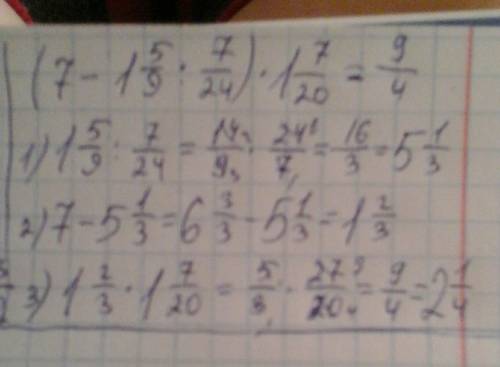 (7 - 1 5/9 : 7/24) · 1 7/20 = 9/4
1) 1 5/9 : 7/24 = 14/9 · 24/7 = 16/3 = 5 1/3
2) 7 - 5 1/3 = 6 3/3 - 5 1/3 = 1 2/3
3) 1 2/3 · 1 7/20 = 5/3 · 27/20 = 9/4 = 2 1/4